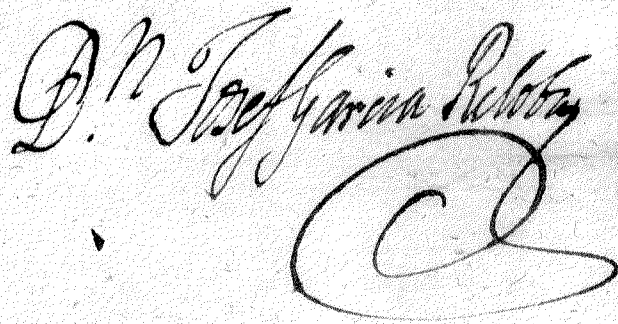 D.n Josef Garcia Relobas